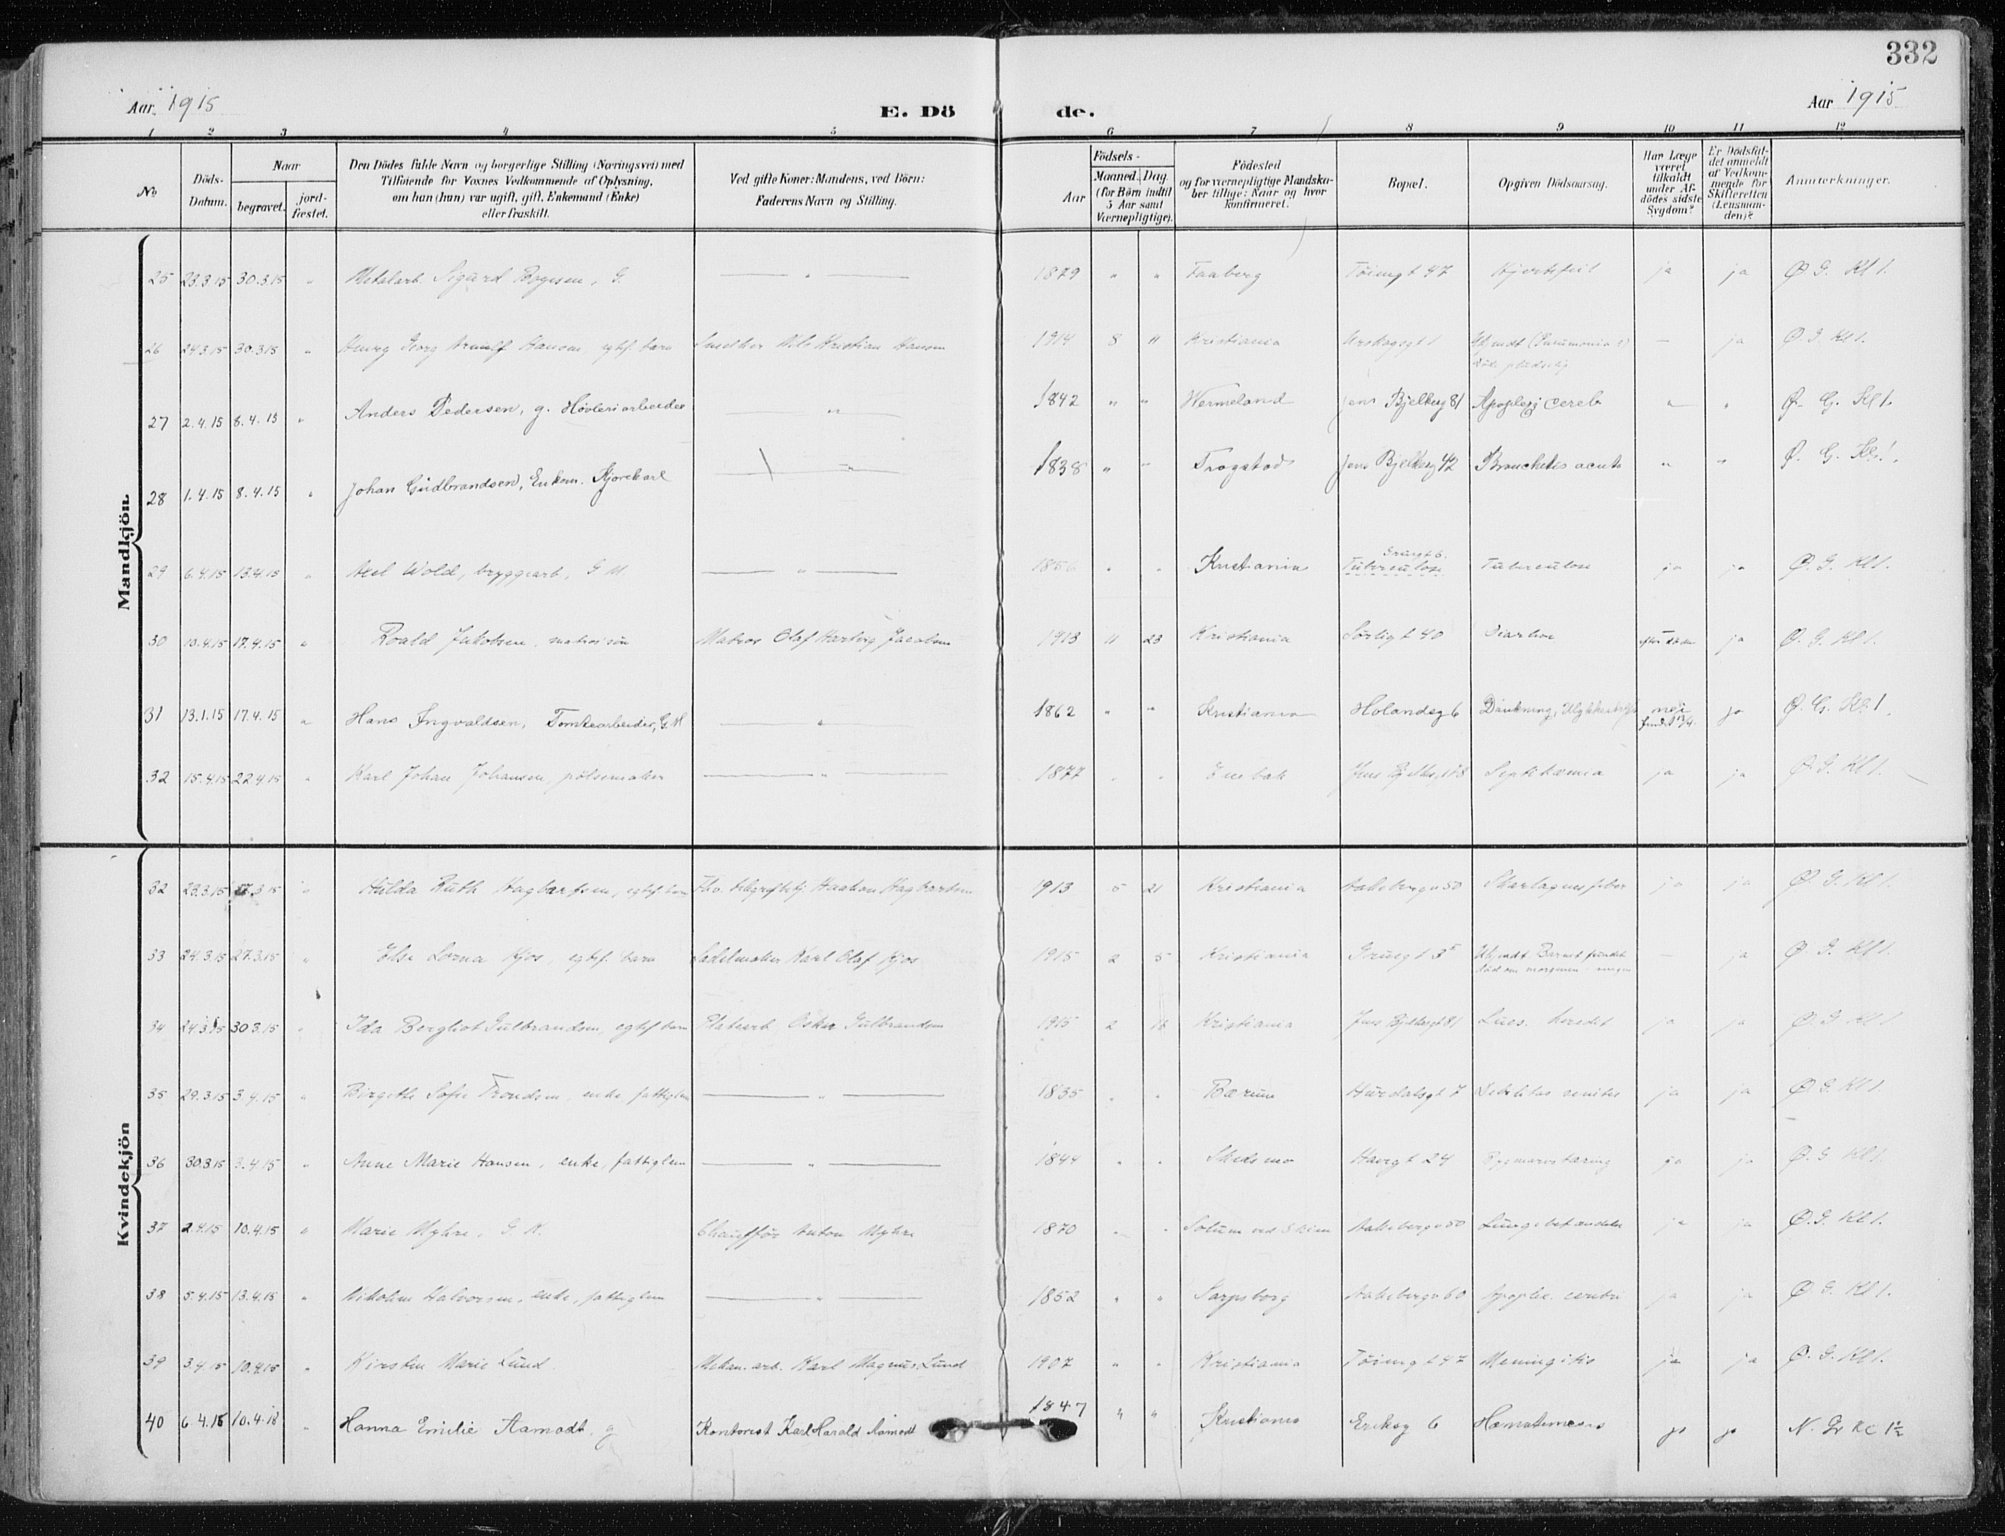 332
Aar 1915 E. Dö de. Aar 1915
1 2 3 4 5 6 7 8 9 10 11 12
No Döds-Datum. Naar begravet. jordfæstet. Den Dödes fulde Navn og borgerlige Stilling (Næringsvei) med Tilföiende for Voxnes Vedkommende af Oplysning, om han (hun) var ugift, gift, Enkemand (Enke) eller fraskilt. Ved gifte Koner: Mandens, ved Börn: Faderens Navn og Stilling. Födsels- Aar Maaned. Dag (for Börn indtil 5 Aar samt Værnepligtige). Födested og for værnepligtige Mandskaber tillige: Naar og hvor konfirmeret. Bopæl. Opgiven Dödsaarsag. Har Læge været tilkaldt under Afdödes sidste Sygdom? Er Dödsfaldet anmeldt af Vedkommende for Skifteretten (Lensmanden)? Anmærkninger.
Mandkjön.
25 23.3.15 30.3.15 " Metalarb. Sigurd Bøgesen, G. " 1879 " " Faaberg Tøiengt 47 Hjertefeil ja ja Ø. G. Kl 1.
26 24.3.15 30.3.15 " Georg Hansen, egtef. barn Kristian Hansen 1914 8 11 Kristiania Urskogsgt 1 (Pneumonia ?) død pludselig — ja Ø G Kl 1.
27 2.4.15 8.4.15 " Anders Pedersen, g. Høvleriarbeider " 1842 " " Wermeland Jens Bjelkeg 81 Apoplexj cereb " " Ø. G. Kl 1.
28 1.4.15 8.4.15 " Johan Gudbrandsen, Enkem. Kjørekarl " 1838 " " Trøgstad Jens Bjelkeg 42 Bronchitis acuta " " Ø. G. Kl 1.
29 6.4.15 13.4.15 " Axel Wold, bryggearb, G M. " 1856 " " Kristiania Grüngt 6. Tuberculose Tuberculose ja ja Ø. G. Kl 1.
30 10.4.15 17.4.15 " Roald Jakobsen, matros søn Matros Olaf Jacobsen 1913 11 23 Kristiania Sørligt 40 Diarhoe — ja Ø. G. Kl 1.
31 13.1.15 17.4.15 " Hans Ingvaldsen, Tomtearbeider, G. M " 1862 " " Kristiania Holandsg 6 Drukning, nei fundet ja Ø. G. Kl 1.
32 15.4.15 22.4.15 " Karl Johan Johansen, pølsemaker " 1877 " " Enebak Jens Bjelkeg Septikæmia ja ja Ø. G. Kl 1.
Kvindekjön
32 23.3.15 3.15 " Hilda Ruth Hagbartsen, egtef. barn Haakon Hagbartsen 1913 5 21 Kristiania Aakebergv 50 Skarlagensfeber ja ja Ø. G. Kl 1.
33 24.3.15 27.3.15 " Else Lorna Kjos, egtef. barn Sadelmaker Karl Olaf Kjos 1915 2 5 Kristiania Grüngt 3 Barnet fundet død om morgenen — ja Ø. G. Kl 1.
34 24.3.15 30 3.15 " Ida Bergliot Gulbrandsen, egtef barn Platearb Oskar Gulbrandsen 1915 2 Kristiania Jens Bjelkesgt 81 Lues. heredit ja ja Ø G Kl 1
35 29.3.15 3.4.15 " Birgitte Sofie Trondsen, enke fattiglem " 1835 " " Bærum Hurdalsgt 7 Debilitas senilis ja ja Ø G Kl 1.
36 30.3.15 3.4.15 " Anne Marie Hansen, enke, fattiglem " 1844 " " Skedsmo Havgt 24 ja ja Ø. G Kl 1.
37 2.4.15 10.4.15 " Marie Myhre, G. K. Chauffør Anton Myhre 1870 " " Solum ved Skien Aakebergv 50 Lungebetændelse ja ja Ø. G. Kl 1.
38 5.4.15 13.4.15 " Halvorsen, enke, fattiglem " 1852 " " Sarpsborg Aakebergv 60 Apoplex. cerebri ja ja Ø G. Kl 1.
39 3.4.15 10.4.15 " Kirsten Marie Lund. Mekan. arb. Karl Magnus Lund 1907 " " Kristiania Tøiengt 47 Meningitis ja ja Ø. G. Kl 1.
40 6 4.15 10.4.18 " Hanna Emilie Aamodt. g Kontorist Karl Harald Aamodt 1847 " " Kristiania Eriksg 6 Hæmatemesis ja ja N. Gr Kl 1½